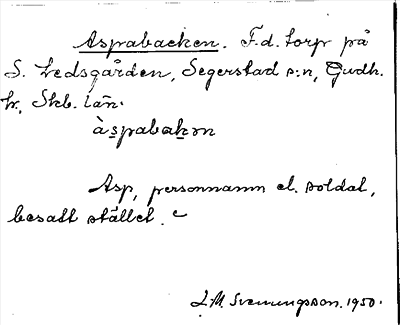 Aspabacken. F.d. torp på
S. Ledsgården, Segerstad s:n, Gudh.
hr, Skb. län.
àspabakən
Asp, personnamn el. soldat,
besatt stället.
J.M. Svenungsson. 1950.